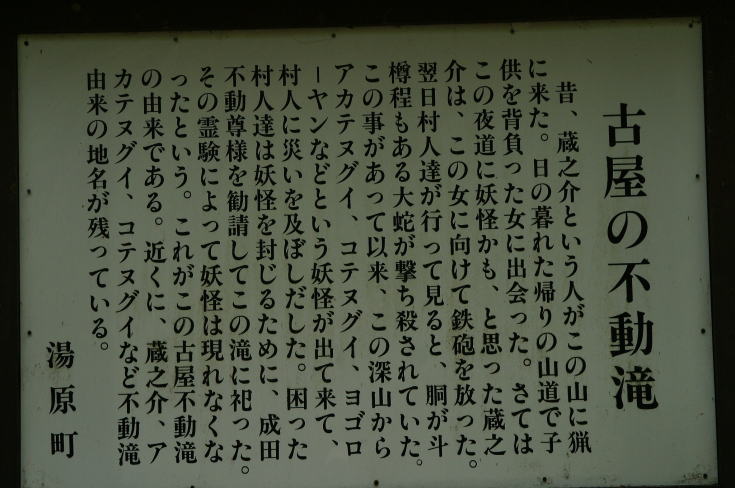 古屋の不動滝
昔、蔵之介という人がこの山に猟
に来た。日の暮れた帰りの山道で子
供を背負った女に出会った。さては
この夜道に妖怪かも、と思った蔵之
介は、この女に向けて鉄砲を放った。
翌日村人達が行って見ると、胴が斗
樽程もある大蛇が撃ち殺されていた。
この事があって以来、この深山から
アカテヌグイ、コテヌグイ、ヨゴロ
ーヤンなどという妖怪が出て来て、
村人に災いを及ぼしだした。困った
村人達は妖怪を封じるために、成田
不動尊様を勧請してこの滝に祀った。
その霊験によって妖怪は現れなくな
ったという。これがこの古屋不動滝
の由来である。近くに、蔵之介、ア
カテヌグイ、コテヌグイなど不動滝
由来の地名が残っている。
湯原町